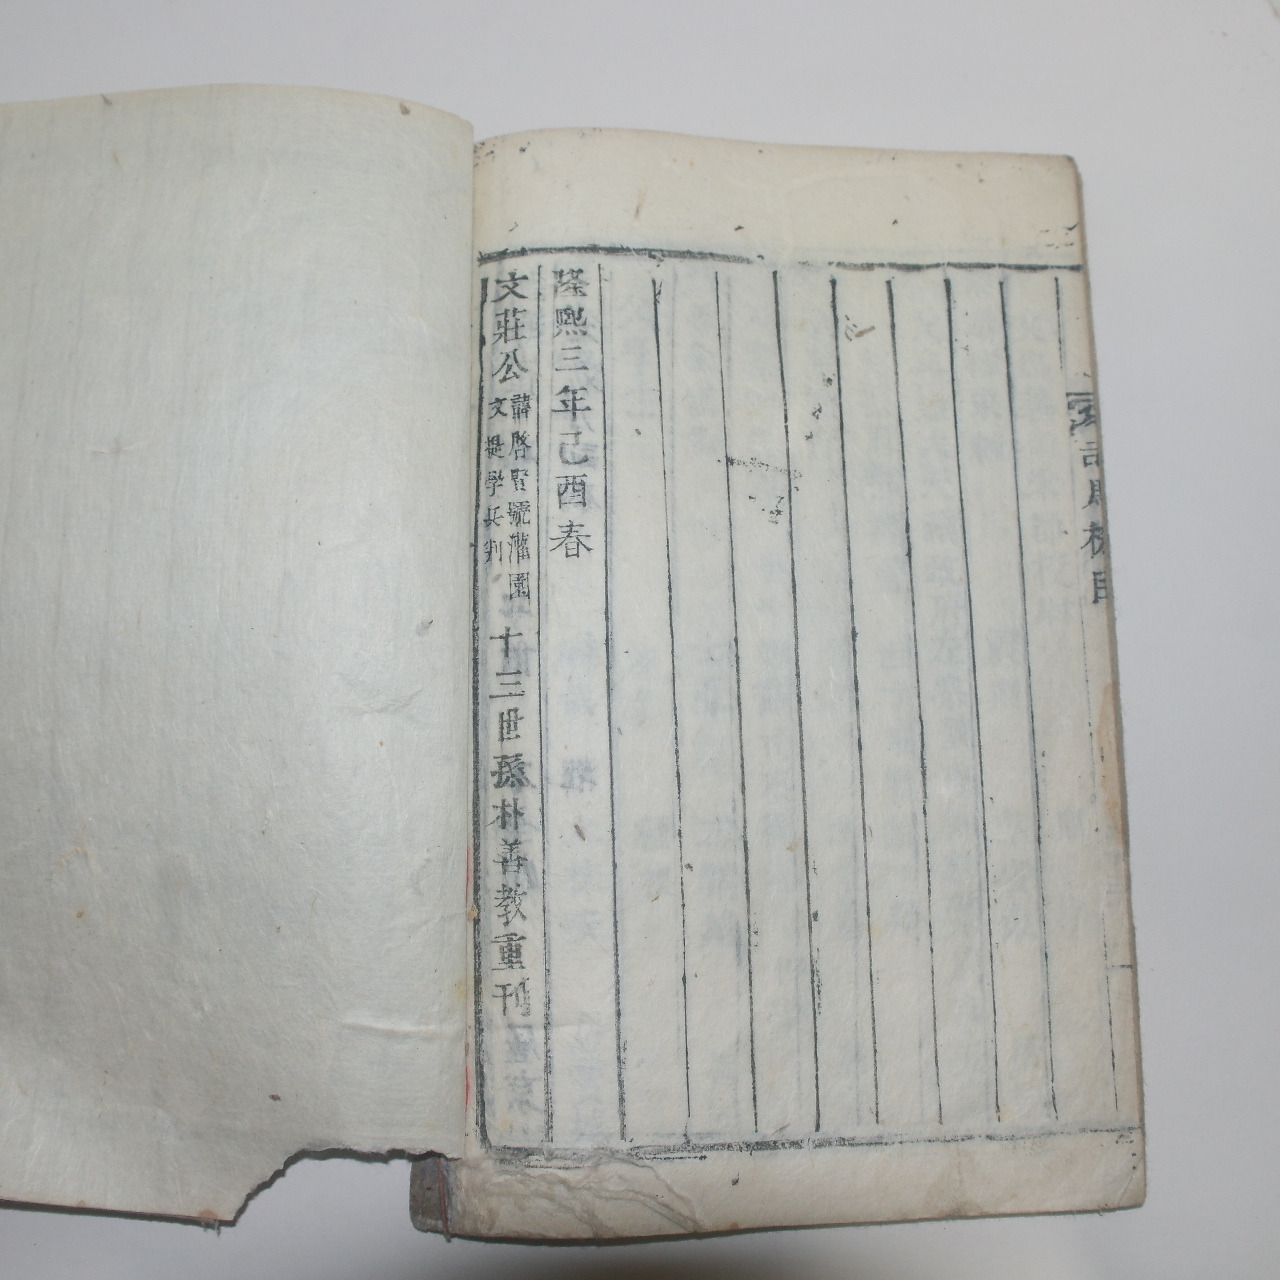 隆熙三年己酉春
文莊公諱啓賢號灌園文提學兵判十三世孫朴善教重刊